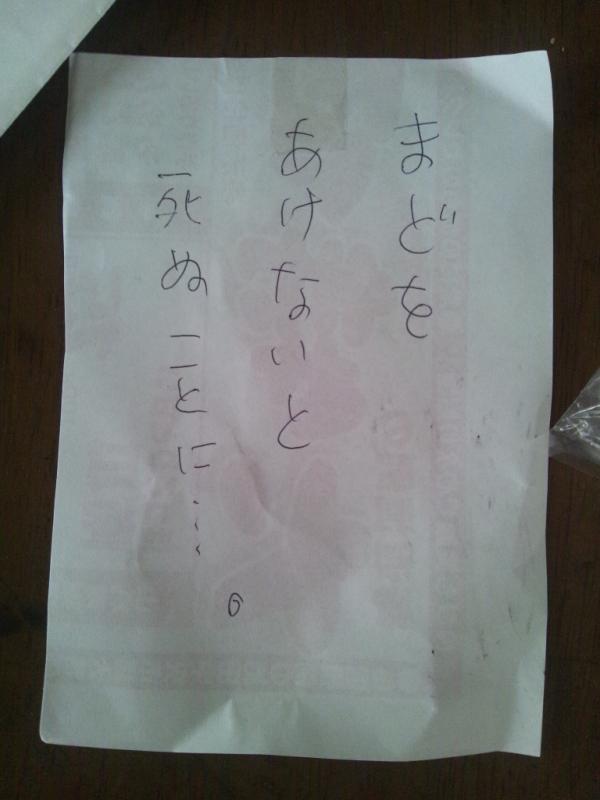 まどを
あけないと
死ぬことに…。